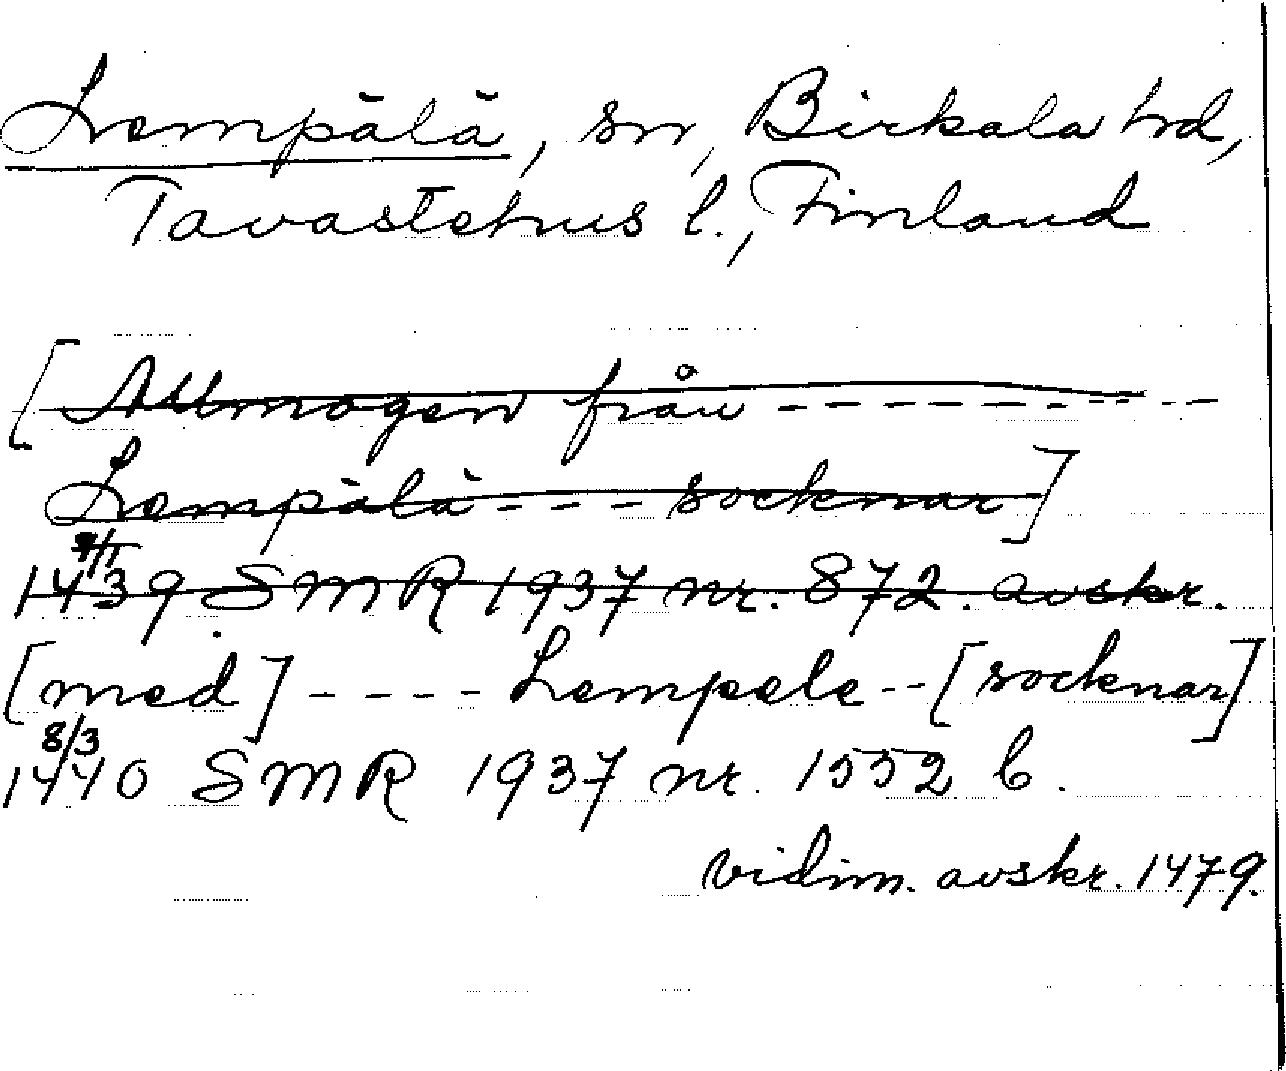 Lempälä, sn, Birkala hd,
Tavastehus l., Finland
[Allmogen från ----------
Lempälä --- socknar]
1439 SMR 1937 nr. 872. avskr.
[med] ---- Lempele -- [socknar]
8/3
1440 SMR 1937 nr. 1552 b.
vidim. avskr. 1479.